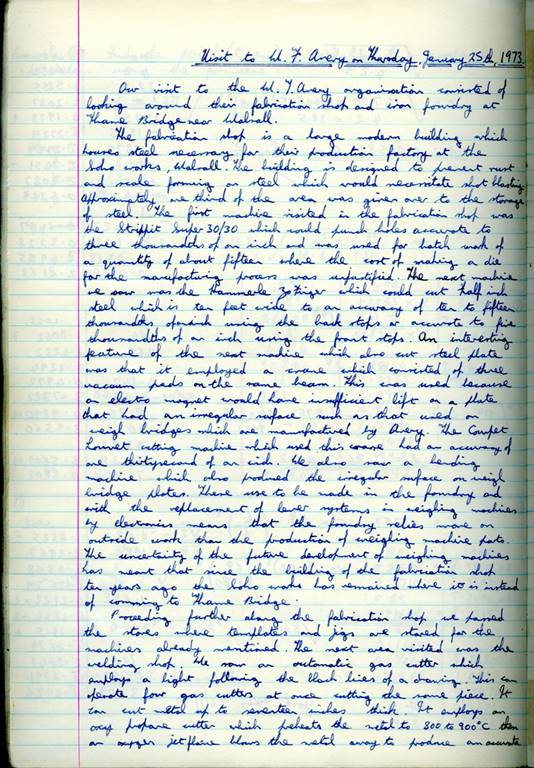 Visit to W. T. Avery on Thursday, January 25th, 1973
Our visit to the W. T. Avery organisation consisted of
looking around their fabrication shop and iron foundry at
Thame Bridge near Walsall.
The fabrication shop is a large modern building which
houses steel necessary for their production factory at the
Soho works, Walsall. The building is designed to prevent rust
and scale forming on steel which would necessitate shot blasting.
Approximately one third of the area was given over to the storage
of steel. The first machine visited in the fabrication shop was
the Strippit Super 30/30 which could punch holes accurate to
three thousandths of an inch and was used for batch work of
a quantity of about fifteen where the cost of making a die
for the manufacturing process was unjustified. The next machine
we saw was the Hammerle which could cut half inch
steel which is ten feet wide to an accuracy of ten to fifteen
thousandths of an inch using the back stops or accurate to five
thousandths of an inch using the front stops. An interesting
feature of the next machine which also cut steel plate
was that it employed a crane which consisted of three
vacuum pads on the same beam. This was used because
an electro magnet would have insufficient lift on a plate
that had an irregular surface such as that used on
weigh bridges which are manufactured by Avery. The
cutting machine which used this crane had an accuracy of
one thirtysecond of an inch. We also saw a bending
machine which also produced the irregular surface on weigh
bridge plates. These use to be made in the foundry and
with the replacement of lever systems in weighing machines
by electronics means that the foundry relies more on
outside work than the production of weighing machine parts.
The uncertainty of the future development of weighing machines
has meant that since the building of the fabrication shop
ten years ago the Soho works has remained where it is instead
of comming to Thame Bridge.
Proceeding further along the fabrication shop we passed
the stores where templates and jigs are stored for the
machines already mentioned. The next area visited was the
welding shop. We saw an automatic gas cutter which
employs a light following the black lines of a drawing. This can
operate four gas cutters at once cutting the same piece. It
can cut metal up to seventeen inches thick. It employs an
oxy propane cutter which preheats the metal to 800 to 900°C then
an oxygen jet flame blows the metal away to produce an accurate